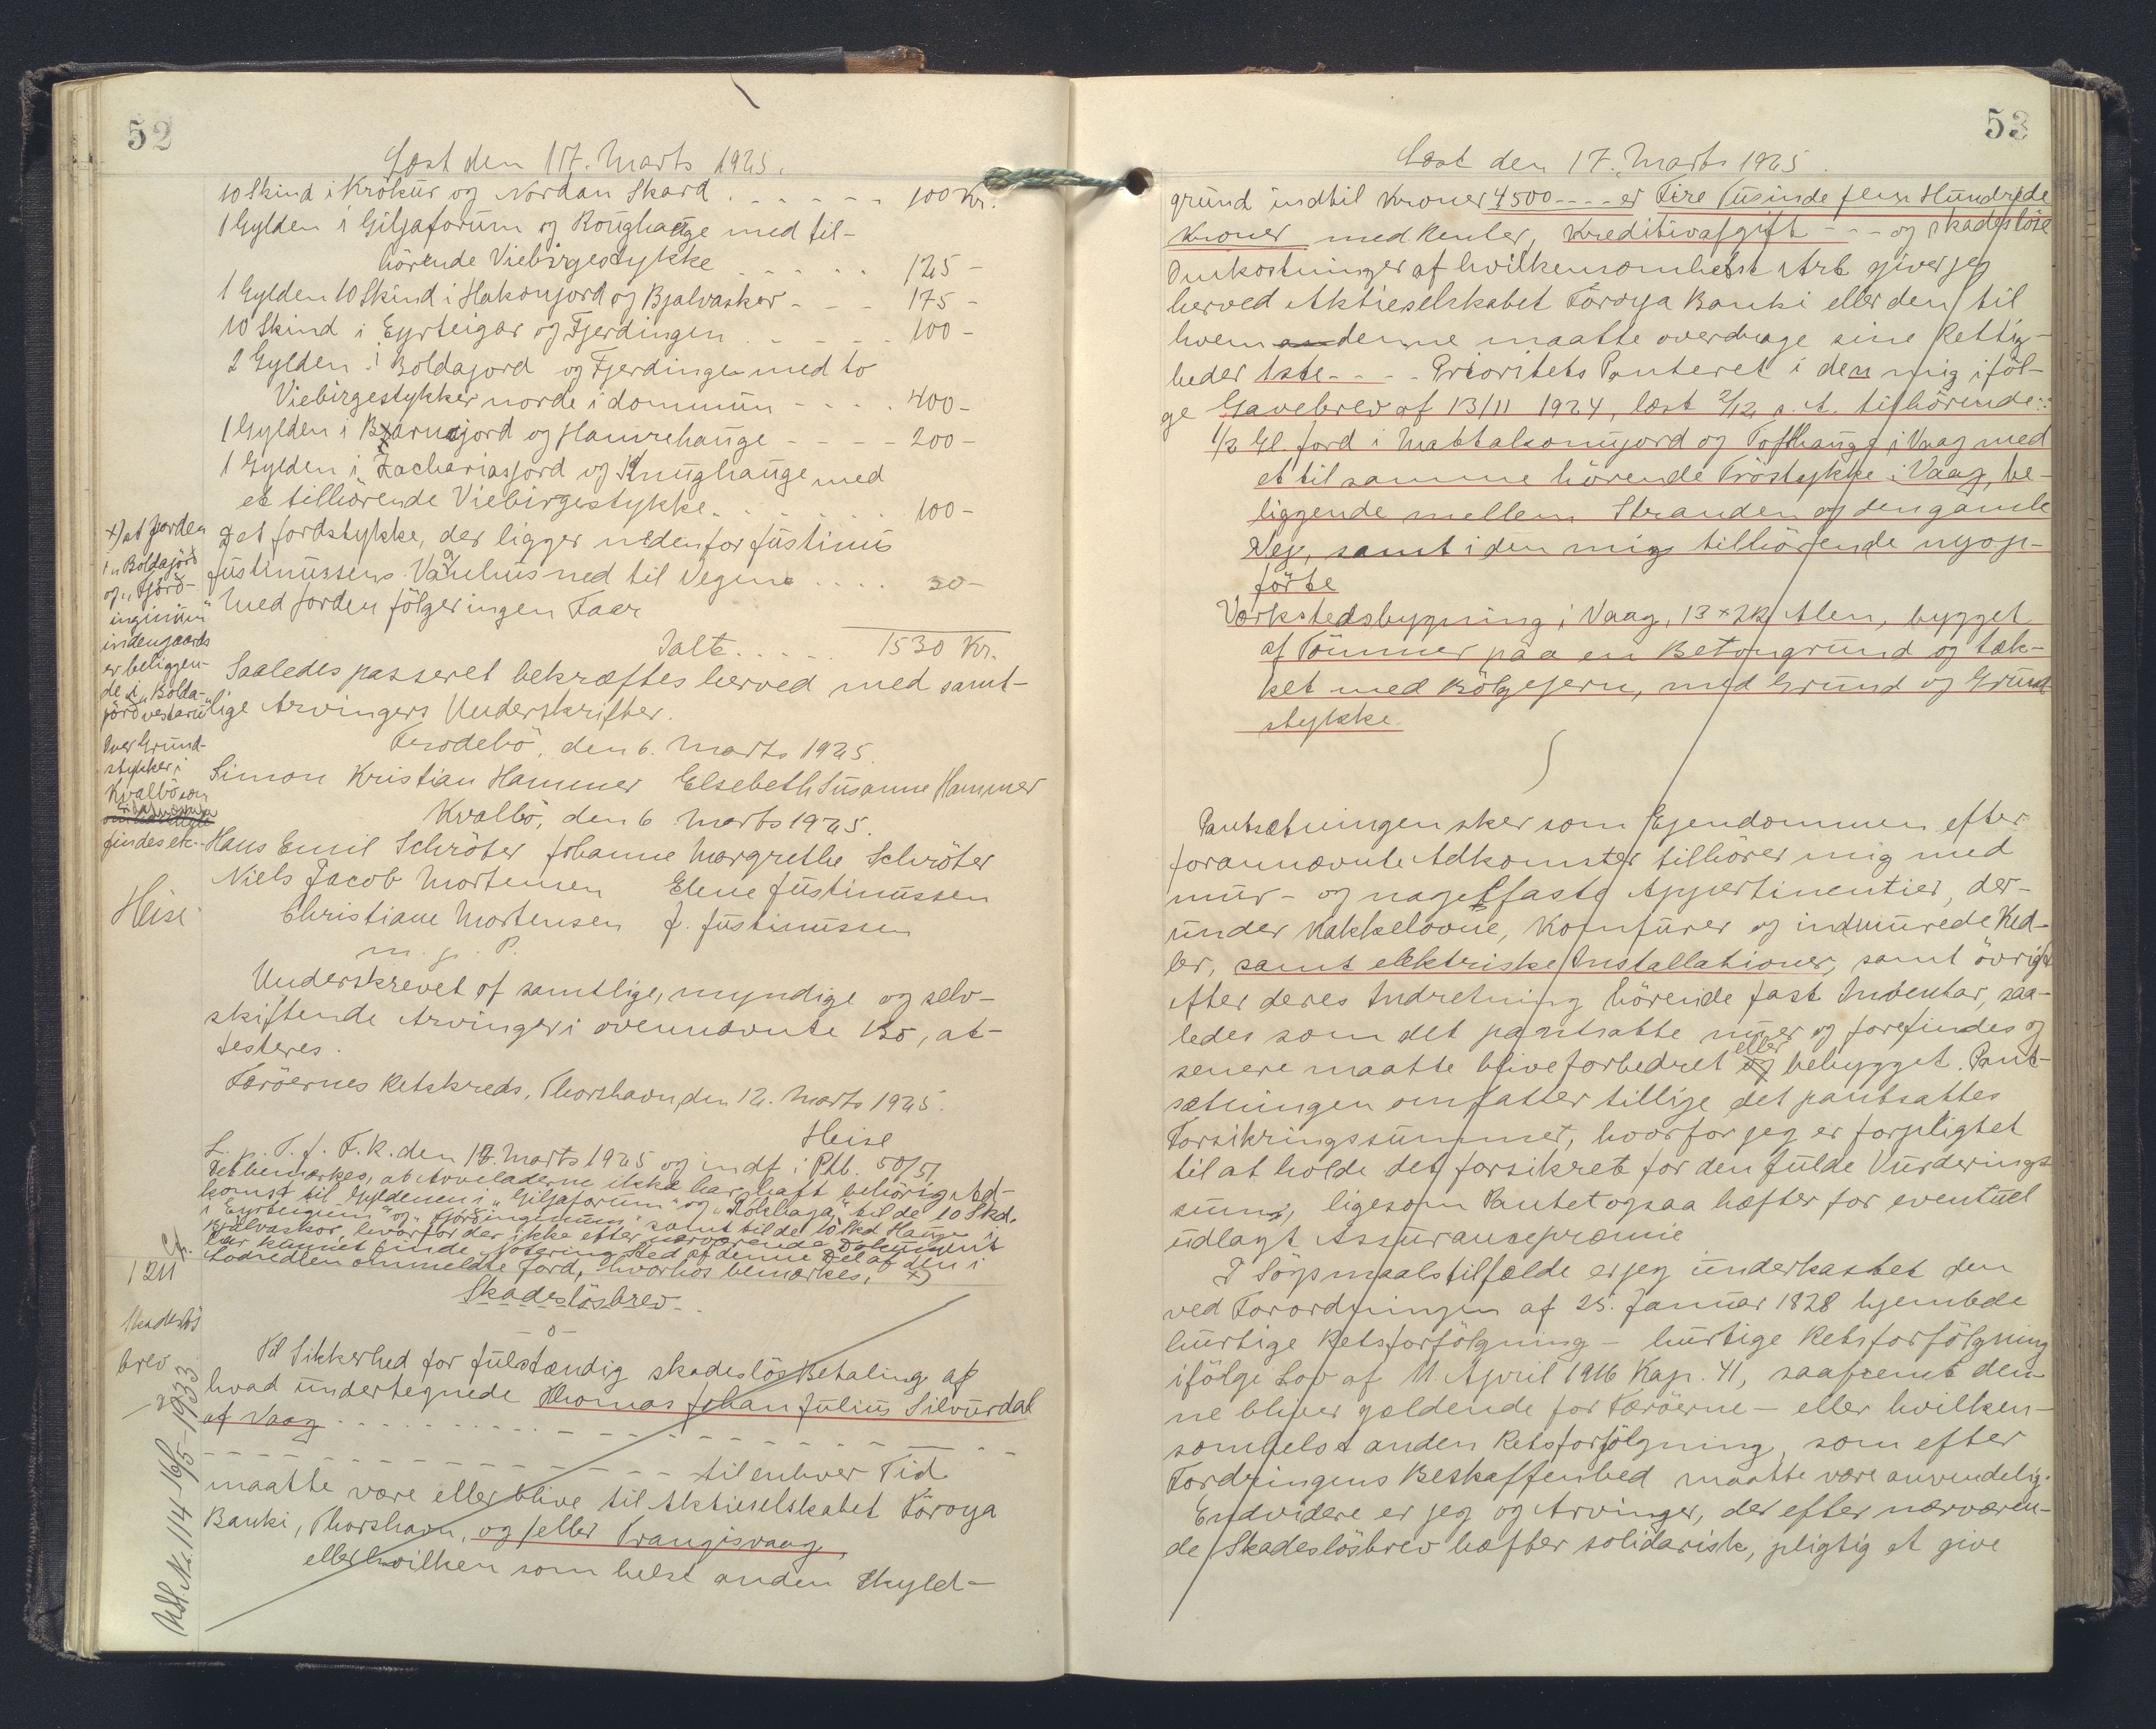 52
Læst den 17. Marts 1925.
10 Skind i Krökur og Nordan Skard . . . . . . 100 Kr.
1 Gylden i Giljaforum og Roughauge med til-
hörende Viebirgestykke . . . . . 125 -
1 Gylden 10 Skind i Hakonjord og Bjalvaskor - - - 175 -
10 Skind i Eyrteigar og Fjerdingen . . . . . 100 -
2 Gylden i Boldajord og Fjerdingen med to
Viebirgestykker norde i dommun - - - . 400 -
1 Gylden i Bjarnajord og Hamrehauge - - - - 200 -
1 Gylden i Zachariasjord og Knughauge med
et tilhörende Viebirgestykke . . . . . . 100 -
Det Jordstykke, der ligger nedenfor Justinus
Justinussens Vaanhus ned til Vegene . . . . 30 -
Med Jorden fölger ingen Faar
Ialt . . . . 1530 Kr.
Saaledes passeret bekræftes herved med samt-
lige Arvingers Underskrifter.
Frodebö, den 6. Marts 1925.
Simon Kristian Hammer Elsebeth Susanne Hammer
Kvalbö, den 6. Marts 1925.
Hans Emil Schröter Johanne Margrethe Schröter
Niels Jacob Mortensen Elene Justinussen
Christiane Mortensen J. Justinussen
m. f. P.
Underskrevet af samtlige, myndige og selv-
skiftende Arvinger i ovennævnte Bo, at-
testeres.
Færöernes Retskreds, Thorshavn, den 12. Marts 1925.
Heise
L. p. T. f. F. R. den 17. Marts 1925 og indf. i Ptb. 50/51
Det bemærkes, at Arveladerne ikke har haft behörig Ad-
komst til Gyldenen i "Giljaforum" og "Rökhaga", til de 10 Skd.
i "Eyrteigum" og "Fjörðinginum" samt til de 10 Skd Hauge i
Bjalvaskor, hvorfor der ikke efter nærværende Dokument
har kunnet finde Notering Sted af denne Del af den i
Lodsedlen ommeldte Jord, hvorhos bemærkes, x)
x) at Jorden
i "Boldajörð
og "Fjörð-
inginum"
indengaards
er beliggen-
de i "Bolda-
jörð vestari"
Over Grund-
stykker i
Kvalbö som
findes etc.
Heise
1211
Skadeslös
brev
Udsl. Nr. 114 16/5-1933
Skadeslösbrev.
-o-
Til Sikkerhed for fulstændig skadeslös Betaling af
hvad undertegnede Thomas Johan Julius Silvurdal
af Vaag - - - - - - - - - - - - - -
- - - - - - - - - - - - - - til enhver Tid
maatte være eller blive til Aktieselskabet Föroya
Banki, Thorshavn, og/eller Trangisvaag,
eller hvilken som helst anden Skyld-
53
Læst den 17. Marts 1925.
grund indtil Kroner 4500 - - - - er Fire Tusinde fem Hundrede
Kroner med Renter, Kreditivafgift - - - og skadeslöse
Omkostninger af hvilkensomhelst Art giver jeg
herved Aktieselskabet Föroya Banki eller den til
hvem denne maatte overdrage sine Rettig-
heder 1ste - - - - Prioritets Panteret i den mig iföl-
ge Gavebrev af 13/11 1924, læst 2/12 s. A. tilhörende:
1/2 Gl. Jord i Mattalsonujord og Tofthauge i Vaag med
et til samme hörende Tröstykke i Vaag, be-
liggende mellem Stranden og den gamle
Vej, samt i den mig tilhörende nyop-
förte
Værkstedsbygning i Vaag, 13 x 12 Alen, bygget
af Tömmer paa en Betongrund og tæk-
ket med Bölgejern, med Grund og Grund
stykke.
Pantsætningen sker som Ejendommen efter
forannævnte Adkomster tilhörer mig med
mur- og nagelfaste Appertinentier, der-
under Kakkelovne, Komfurer og indmurede Ked-
ler, samt elektriske Installationer, samt övrigt
efter deres Indretning hörende fast Inventar, saa-
ledes som det pantsatte nu er og forefindes og
senere maatte blive forbedret eller bebygget. Pant-
sætningen omfatter tillige det pantsattes
Forsikringssummer, hvorfor jeg er forpligtet
til at holde det forsikret for den fulde Vurderings
sum, ligesom Pantet ogsaa hæfter for eventuel
udlagt Assurancepræmie
I Sögsmaalstilfælde er jeg underkastet den
ved Forordningen af 25. Januar 1828 hjemlede
hurtige Retsforfölgning - hurtige Retsforfölgning
ifölge Lov af 11. April 1916 Kap. 41, saafremt den-
ne bliver gældende for Færöerne - eller hvilken-
somhelst anden Retsforfölgning, som efter
Fordringens Beskaffenhed maatte være anvendelig.
Endvidere er jeg og Arvinger, der efter nærværen-
de Skadeslösbrev hæfter solidarisk, pligtig at give